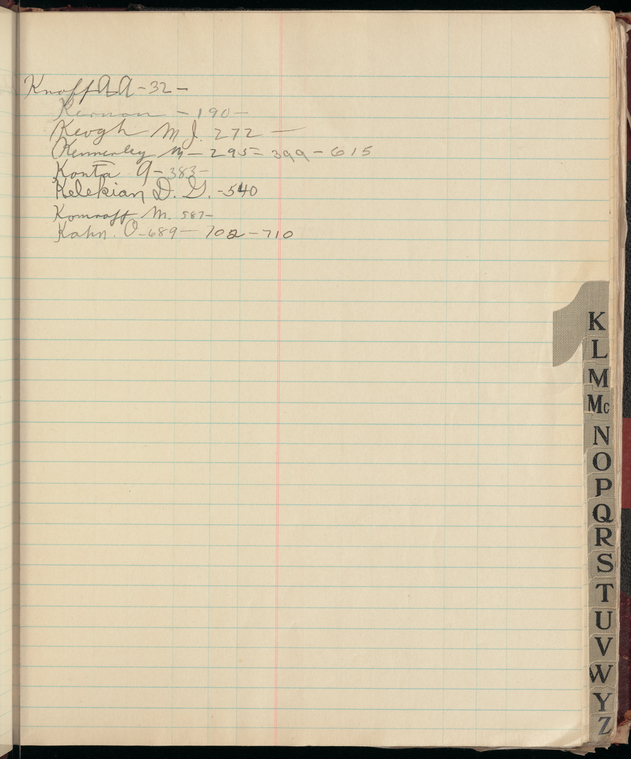 Knopf A A - 32 -
Kernan - 190 -
Keogh M J. 272 -
Kennerley M - 295 = 399 - 615
Konta A - 383 -
Kelekian D. G. - 540
Komroff M. 587 -
Kahn. O - 689 - 702 - 710
K
L
M
Mc
N
O
P
Q
R
S
T
U
V
W
Y
Z